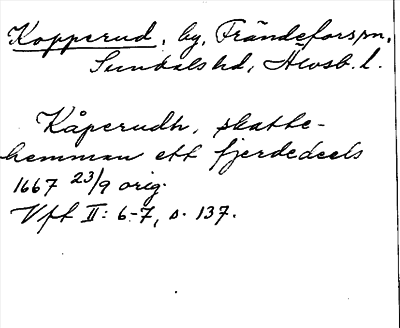 Kopperud, by, Frändefors sn,
Sundals hd, Älvsb. l.
Kåperudh, skatte-
hemman ett fjerdedeels
1667 23/9 orig.
Vft II: 6-7, s. 137.